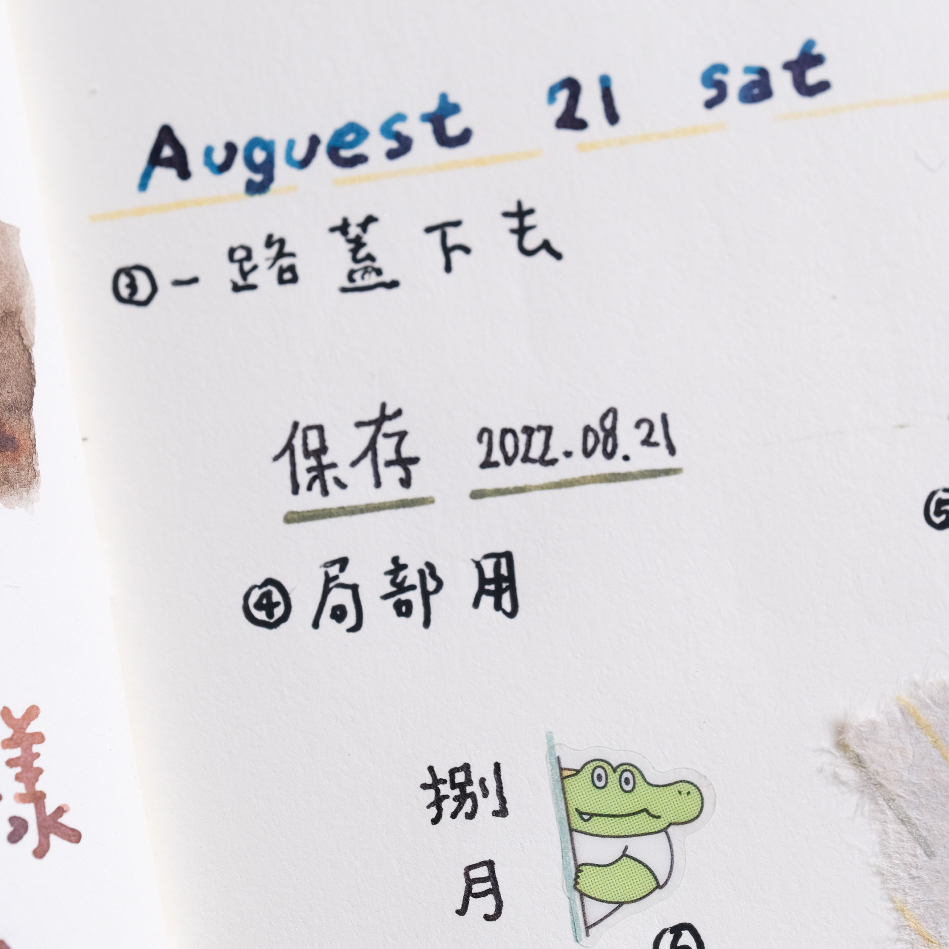 Auguest 21 sat
③一路蓋下去
保存 2022.08.21
⑤
④局部用
捌
月
樣
⑥